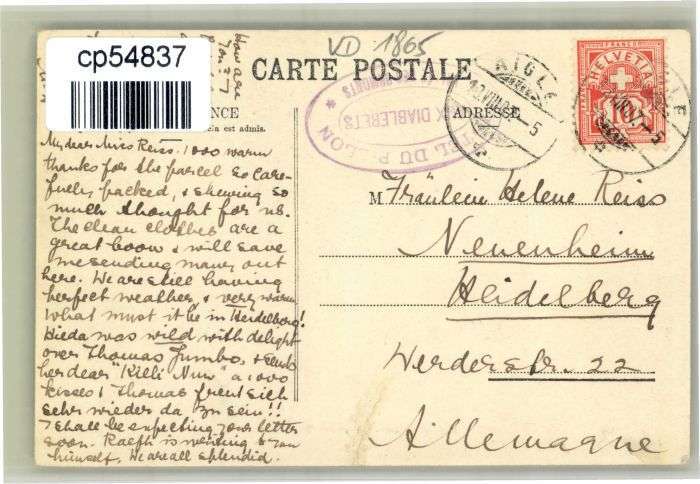 cp54837
VD 1865
CARTE POSTALE
NCE
ADRESSE
la est admis.
HELVETIA
FRANCO
AIGLE
5
DIABLERETS
How are
you??
My dear Miss Reiss. 1000 warm
thanks for the parcel so care-
fully packed, & shewing so
much thought for us.
The clean clothes are a
great boon & will save
me sending many out
here. We are still having
perfect weather, & very warm
What must it be in Heidelberg!
was wild with delight
over Thomas Jumbo, & sends
her dear "Killi Nun" a 1000
kisses! Thomas freut sich
sehr wieder da zu sein!!
I shall be expecting your letter
soon. Ralph is writing to you
himself. We are all splendid.
M Fräulein Helene Reiss
Neuenheim
Heidelberg
Werderstr. 22
Allemagne